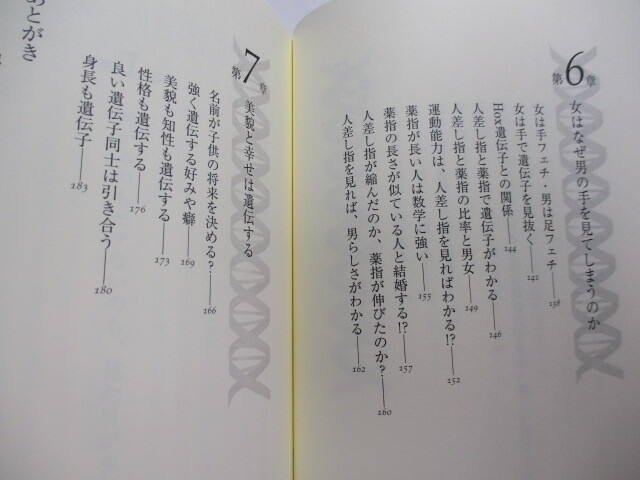 第6章 女はなぜ男の手を見てしまうのか
女は手フェチ・男は足フェチ——138
女は手で遺伝子を見抜く——142
Hox遺伝子との関係——144
人差し指と薬指で遺伝子がわかる——146
人差し指と薬指の比率と男女——149
運動能力は、人差し指を見ればわかる!?——152
薬指が長い人は数学に強い——155
薬指の長さが似ている人と結婚する!?——157
人差し指が縮んだのか、薬指が伸びたのか?——160
人差し指を見れば、男らしさがわかる——162
第7章 美貌と幸せは遺伝する
名前が子供の将来を決める?——166
強く遺伝する好みや癖——169
美貌も知性も遺伝する——173
性格も遺伝する——176
良い遺伝子同士は引き合う——180
身長も遺伝子——183
あとがき